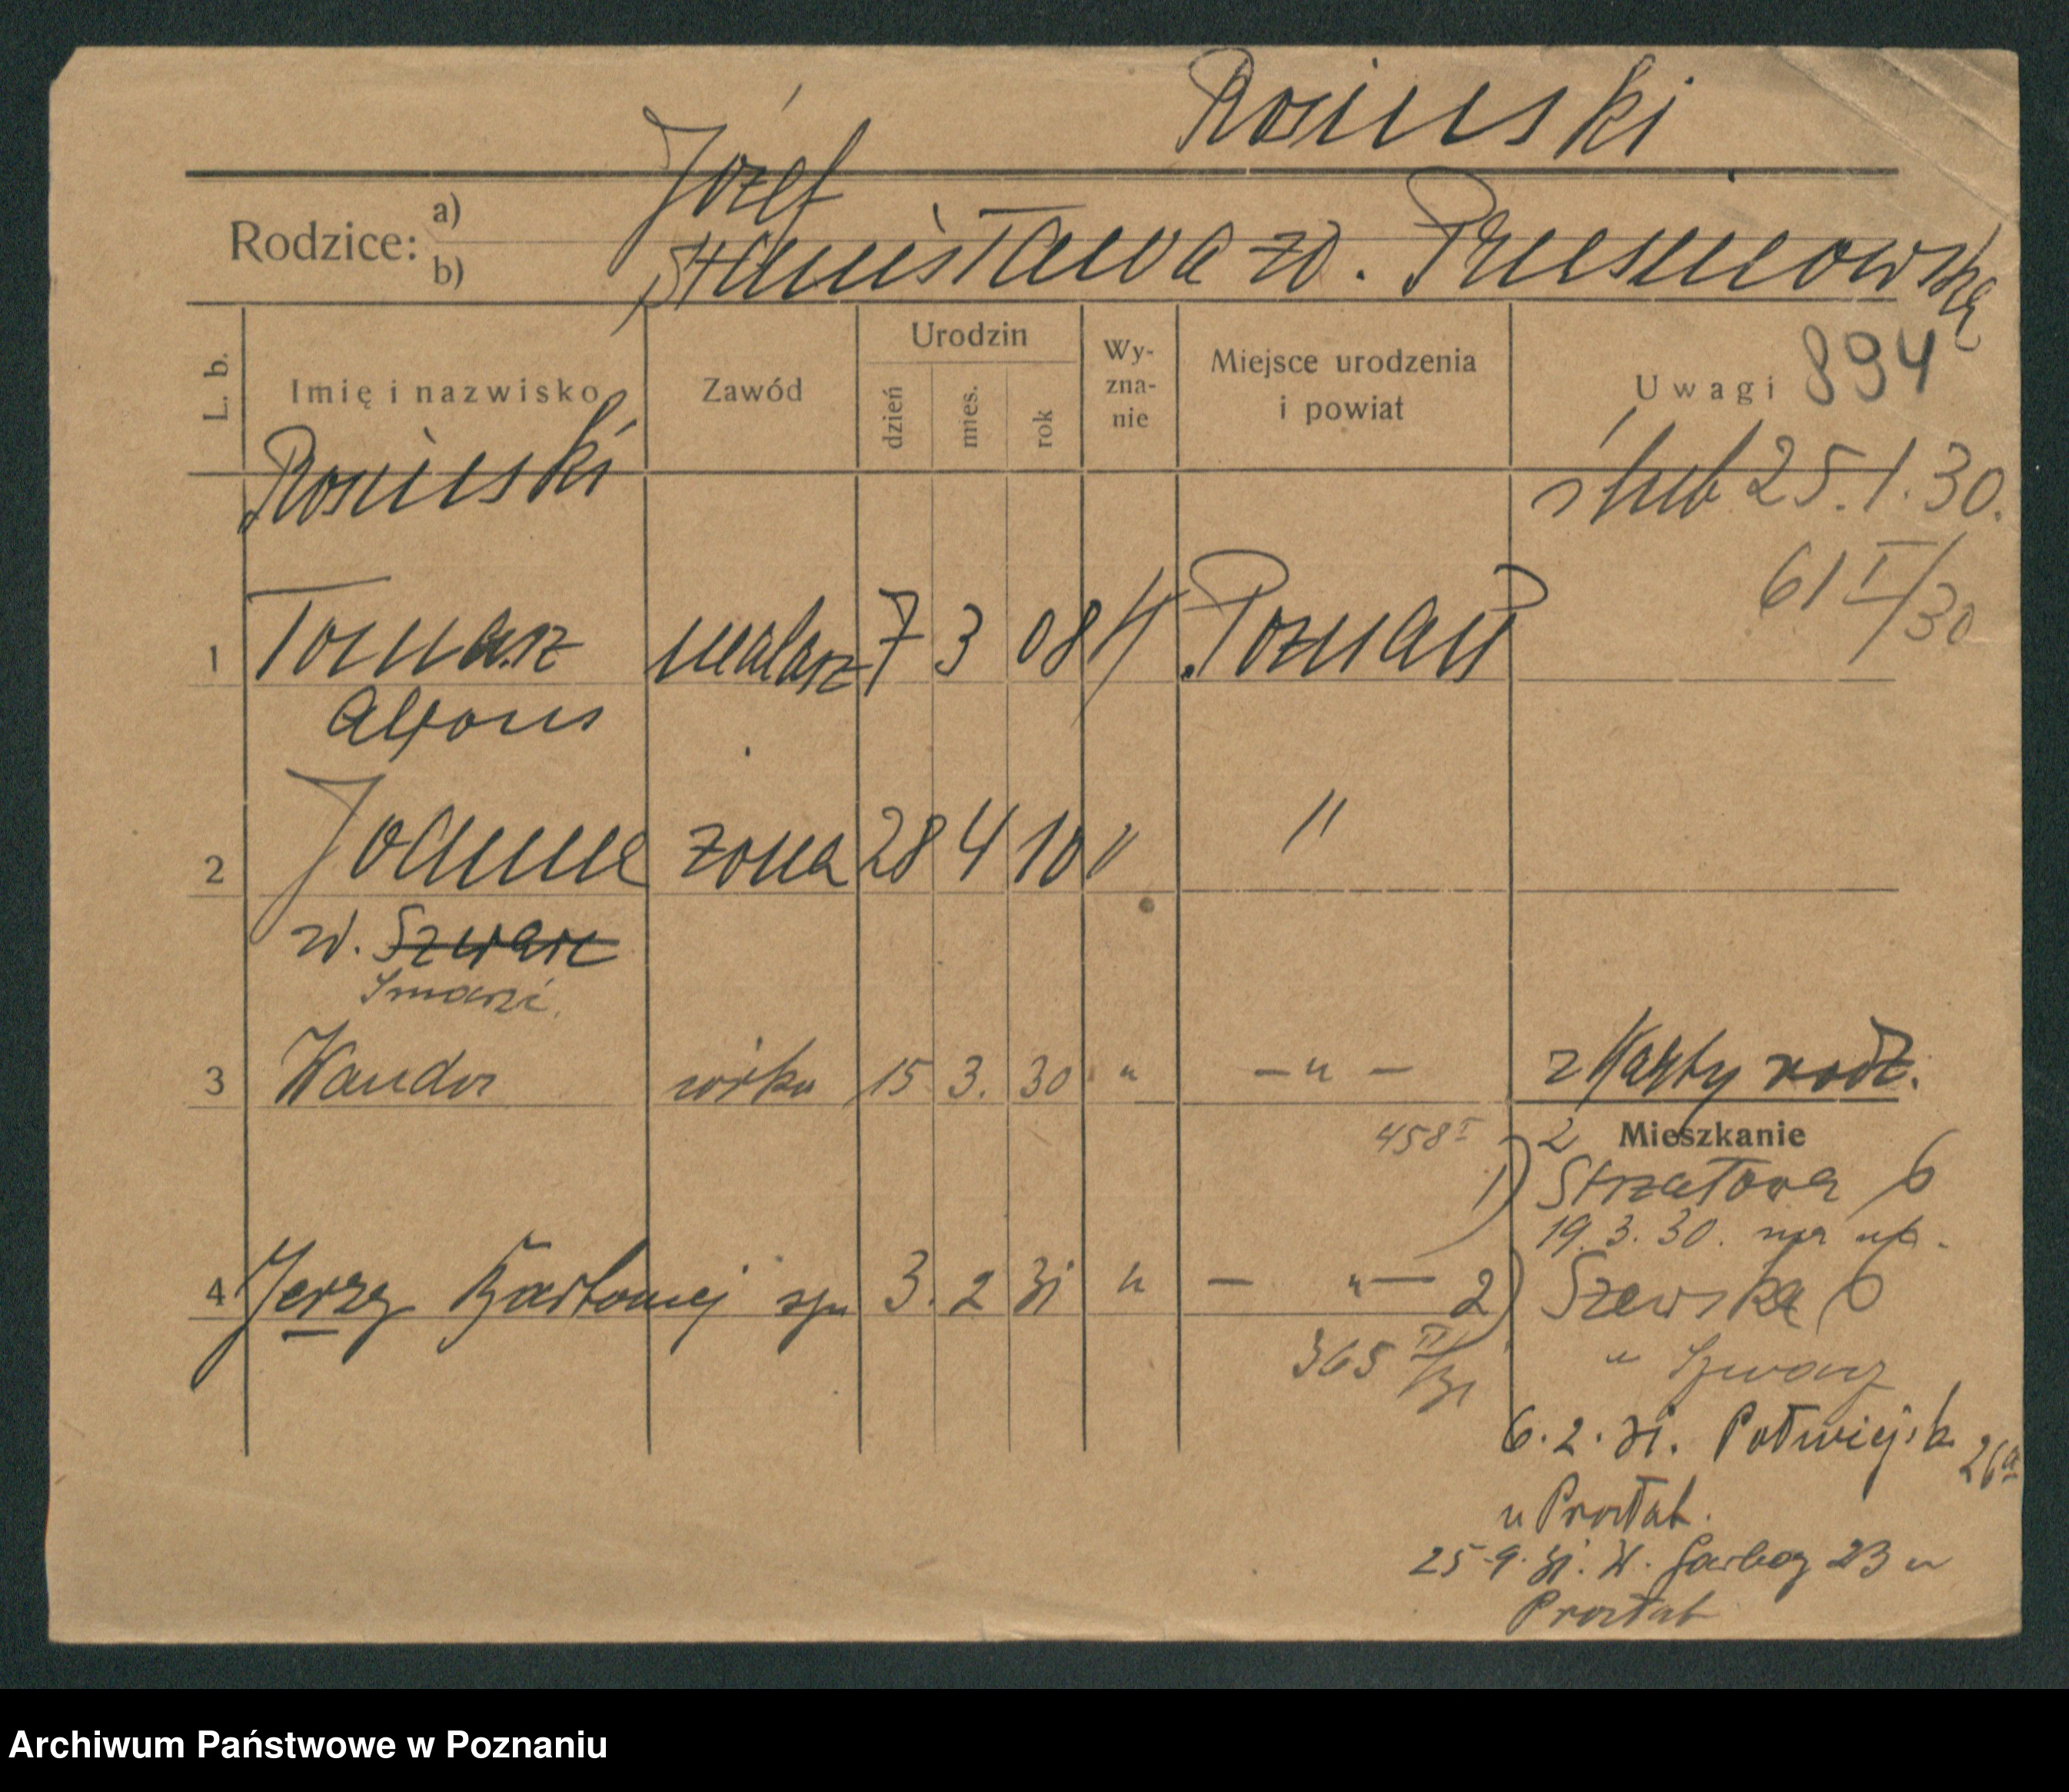 Rosiński
Rodzice: a) Józef
b) Stanisława zd.
L. b. Imię i nazwisko Zawód Urodzin dzień mies. rok Wy-zna-nie Miejsce urodzenia i powiat Uwagi 894
Rosiński ślub 25.1.30.
61 I/30
1 Tomasz malarz 7 3 08 Poznań
Alfons
2 Joanna żona 28 4 10 " "
zd. Szwarc
3 Wanda córka 15 3. 30 " — " — z Karty rodz.
458 I Mieszkanie
1) Strzałowa 6
19.3.30.
4 Jerzy Bartłomiej syn 3. 2 31 " — " — 2) Szewska
365 II/31
6.2.31. Półwiejsk 26a
u
25.9.31. W. Garbary 23 u
Archiwum Państwowe w Poznaniu